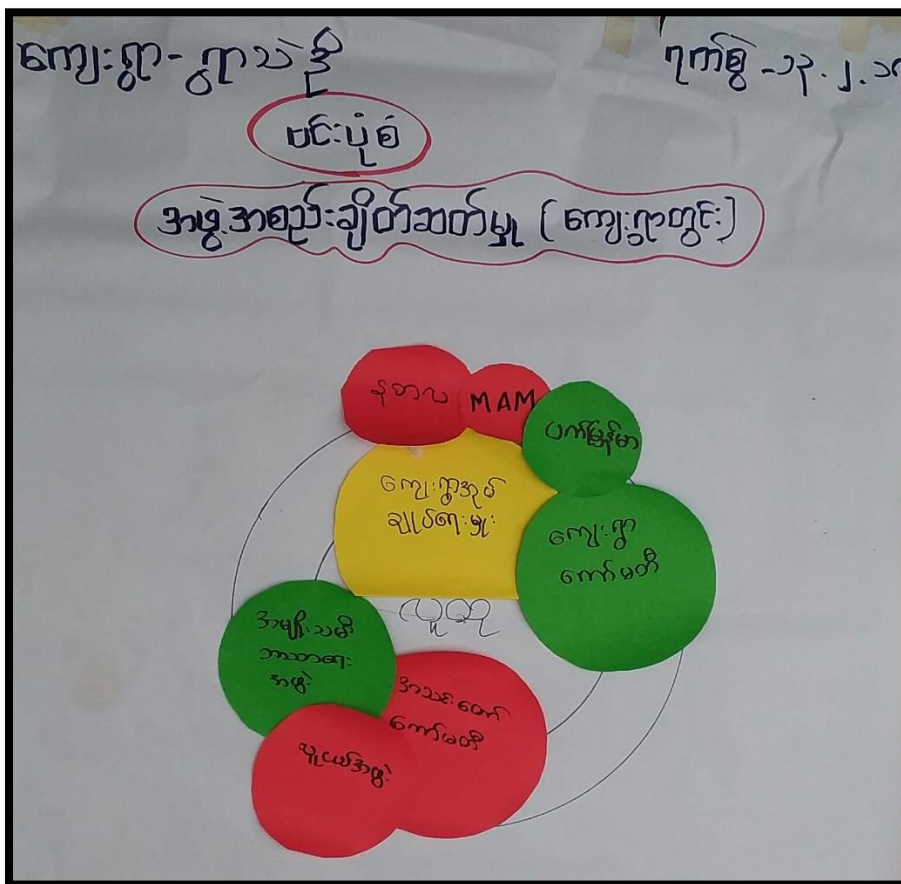 ကျေးရွာ- ရွာသဲဦ
ရက်စွဲ -၁၃.၂.၁၈
ဗင်းပုံစံ
အဖွဲ့အစည်းချိတ်ဆတ်မှု (ကျေးရွာတွင်း)
နစာလ
MAM
ပက်မြန်မာ
ကျေးရွာအုပ်
ချုပ်ရေးမှုး
ကျေးရွာ
ကော်မတီ
လူထု
အမျိုးသမီး
ဘာသာရေး
အဖွဲ့
အသင်းတော်
ကော်မတီ
လူငယ်အဖွဲ့